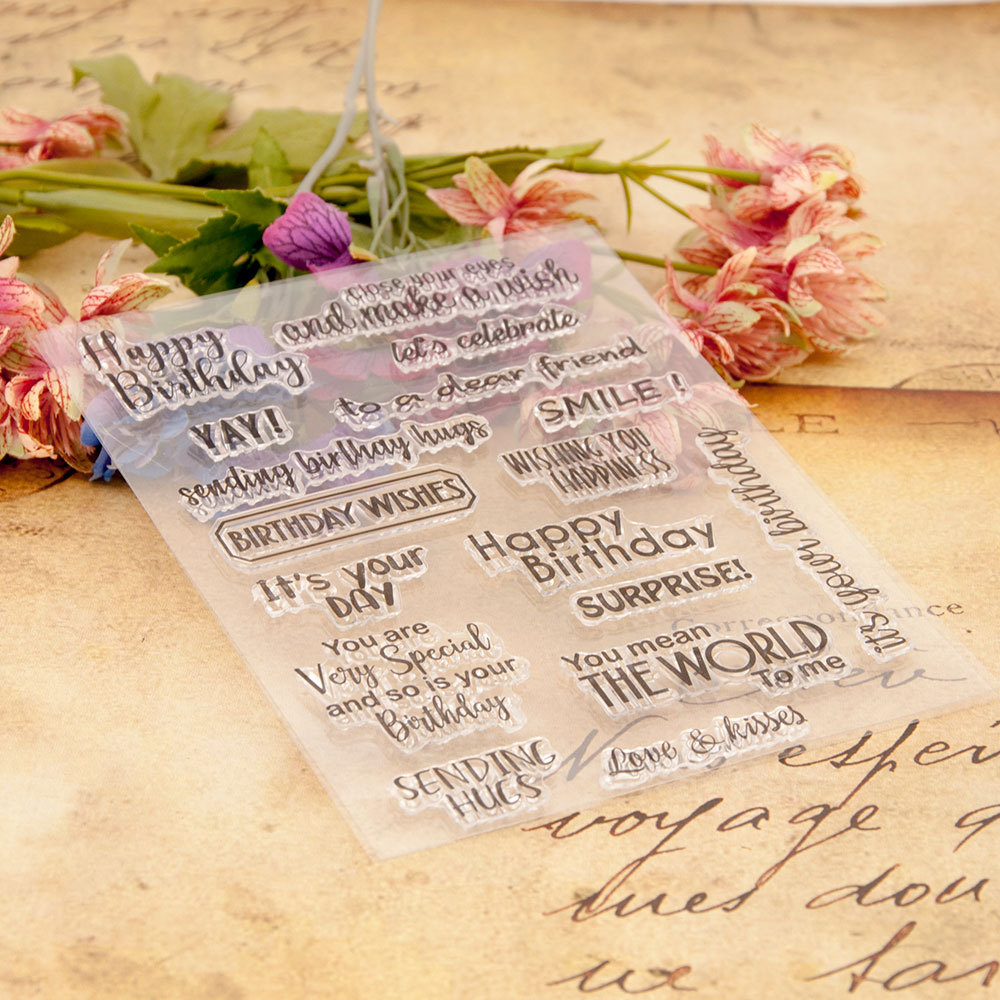 close your eyes
and make a wish
Happy
Birthday
let's celebrate
to a dear friend
YAY!
SMILE !
sending birthday hugs
WISHING YOU
HAPPINESS
BIRTHDAY WISHES
it's your birthday
Happy
Birthday
It's your
DAY
SURPRISE!
You are
Very Special
and so is your
Birthday
You mean
THE WORLD
To me
SENDING
HUGS
Love & kisses
voyage